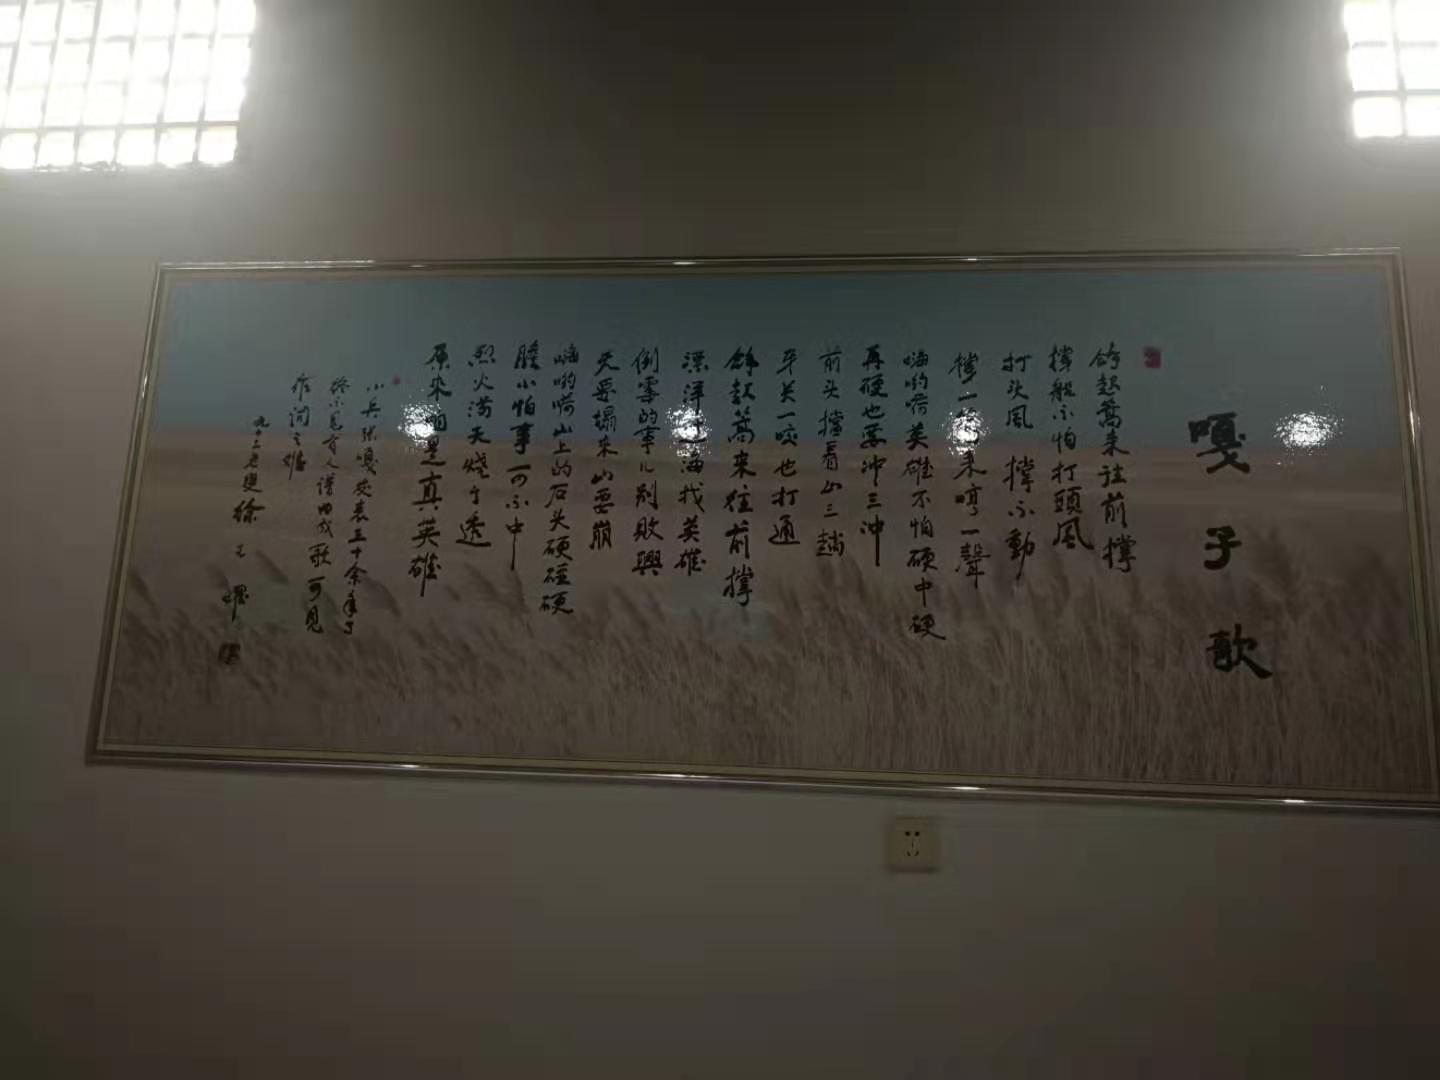 嘎子歌
篙来往前撑
撑船不怕打頭風
打头风撑不動
撑一篙来哼一聲
嗨哟嗬英雄不怕硬中硬
再硬也要冲三冲
前头擋着山三趟
牙关一咬也打通
篙来往前撑
漂洋过海找英雄
倒霉的事儿别败興
天要塌来山要崩
嗨哟嗬山上的石头硬碰硬
膽小怕事可不中
烈火满天烧个透
原来咱是真英雄
小兵张嘎发表五十余年了
终不见有人谱曲成歌可见
作词之难
九十三老叟徐光耀